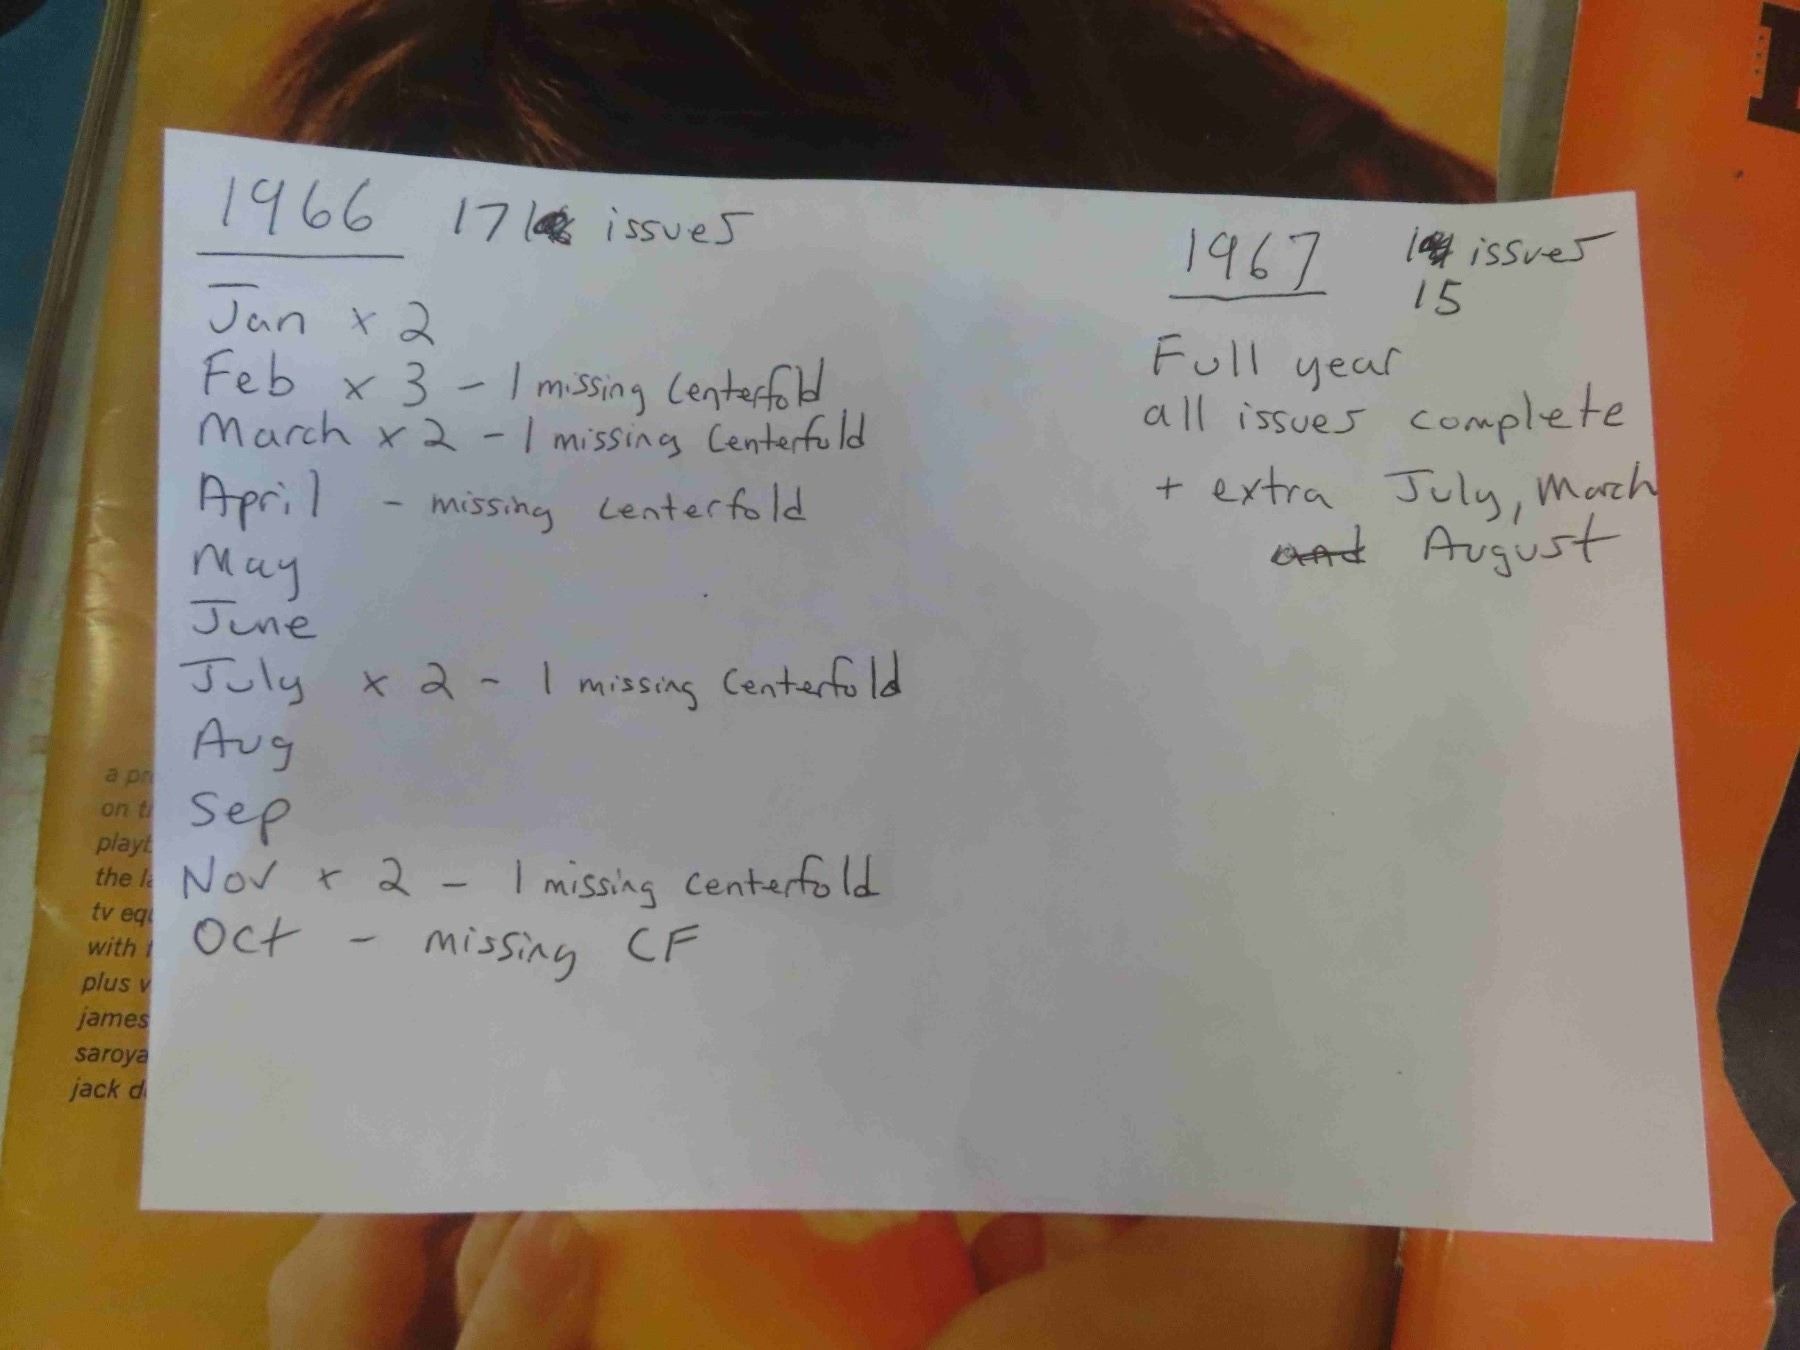 1966 17 issues
Jan x 2
Feb x 3 - 1 missing Centerfold
March x 2 - 1 missing Centerfold
April - missing centerfold
May
June
July x 2 - 1 missing Centerfold
Aug
Sep
Nov x 2 - 1 missing centerfold
Oct - missing CF
1967 issues
15
Full year
all issues complete
+ extra July, March
and August
a
on
the
tv
with
plus
james
jack